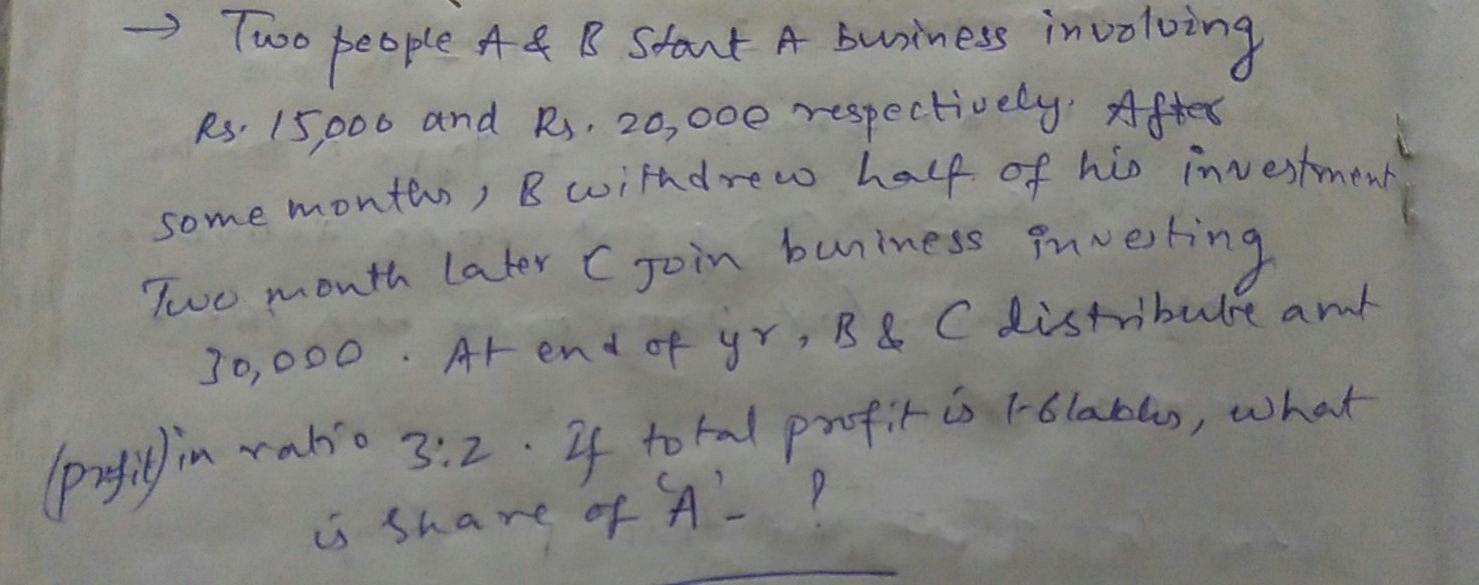 → Two people A & B Start A business involving
Rs. 15,000 and Rs. 20,000 respectively. After
some months, B withdrew half of his investment
Two month Later C Join business investing
30,000. At end of yr, B & C distribute amt
(profit) in ratio 3:2. If total profit is 1.6 lakhs, what
is share of 'A' - ?